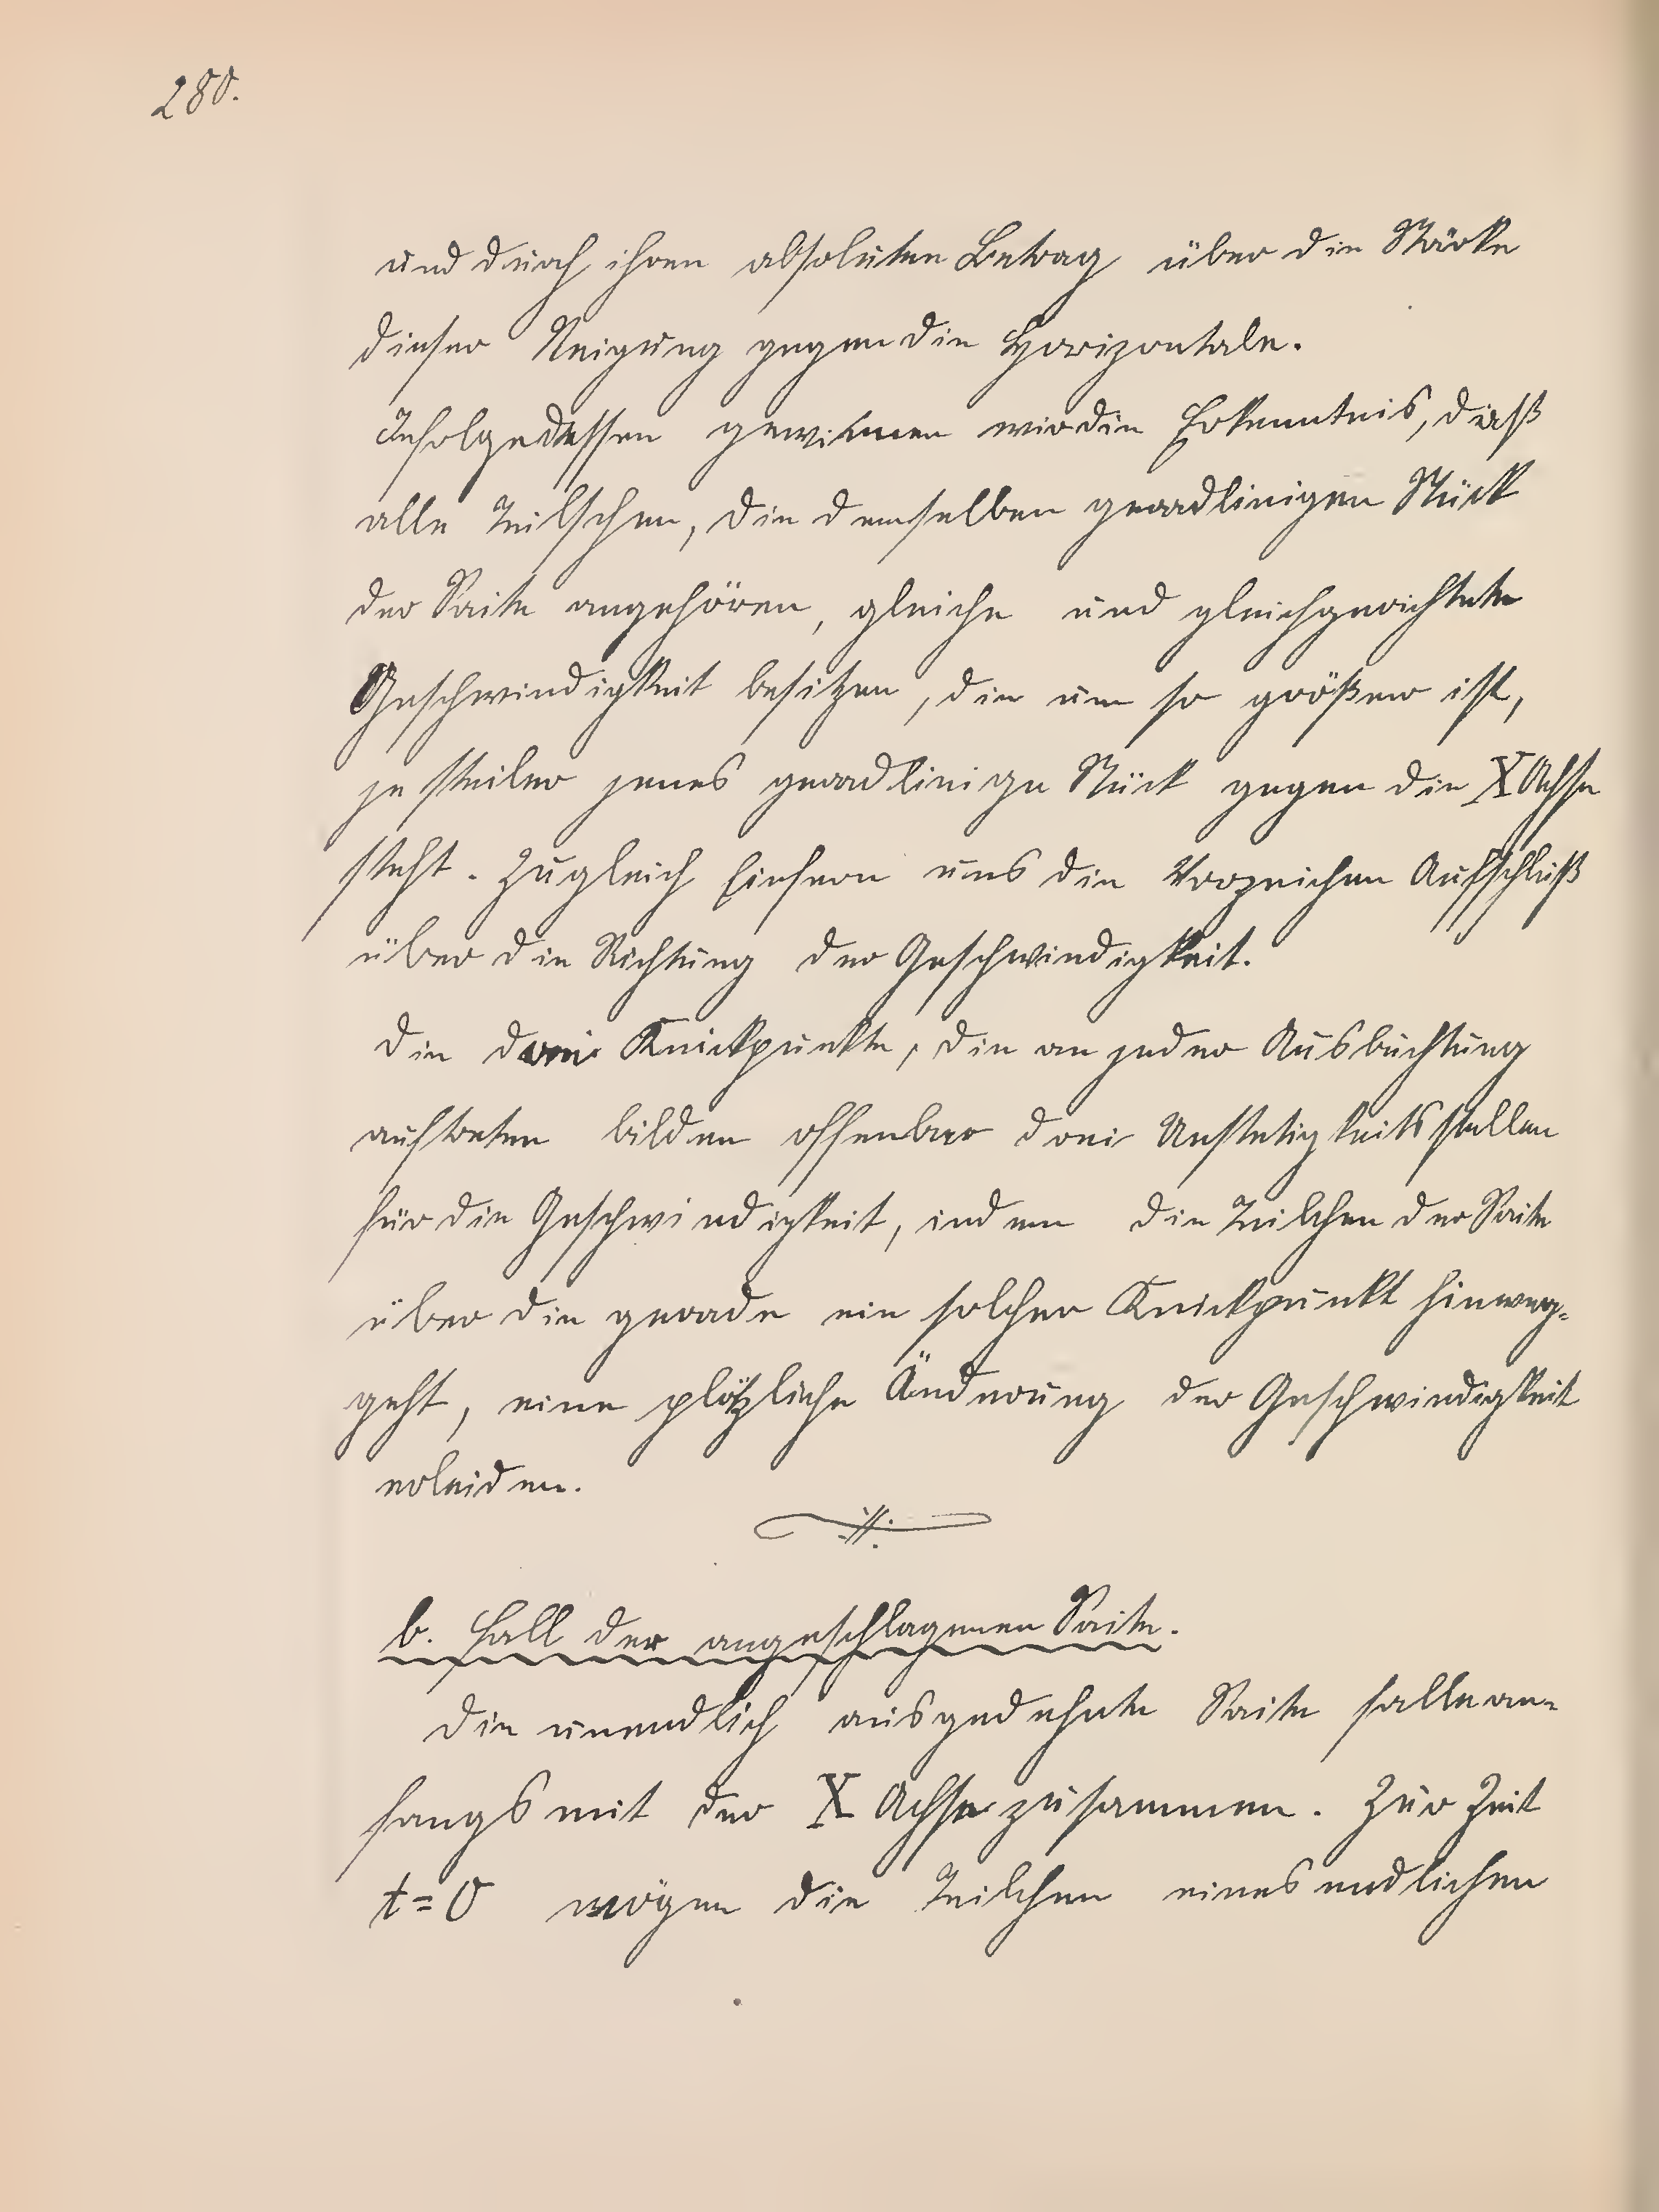 280.
und durch ihren absoluten Betrag über die Stärke
dieser Neigung gegen die Horizontale.
Infolgedessen gewinnen wir die Erkenntnis, daß
alle Teilchen, die demselben geradlinigen Stück
der Saite angehören, gleiche und gleichgerichtete
Geschwindigkeit besitzen, die um so größer ist,
je steiler jenes geradlinige Stück gegen die X Achse
steht. Zugleich liefern uns die Vorzeichen Aufschluß
über die Richtung der Geschwindigkeit.
Die drei Knickpunkte, die an jeder Ausbuchtung
auftreten bilden offenbar drei Unstetigkeitsstellen
für die Geschwindigkeit, indem die Teilchen der Saite
über die gerade ein solcher Knickpunkt hinweg-
geht, eine plötzliche Änderung der Geschwindigkeit
erleiden.
b. Fall der angeschlagenen Saite.
Die unendlich ausgedehnte Saite falle an-
fangs mit der X Achse zusammen. Zur Zeit
t=0 mögen die Teilchen eines endlichen